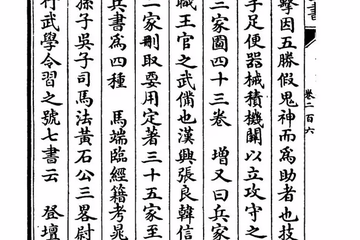 擊因五勝假鬼神而爲助者也技
手足便器械積機關以立攻守之
三家圖四十三卷　增又曰兵家
職王官之武備也漢興張良韓信
二家刪取要用定著三十五家至
兵書爲四種　馬端臨經籍考晁
孫子吳子司馬法黃石公三畧尉
行武學令習之號七書云　登壇
卷二百六